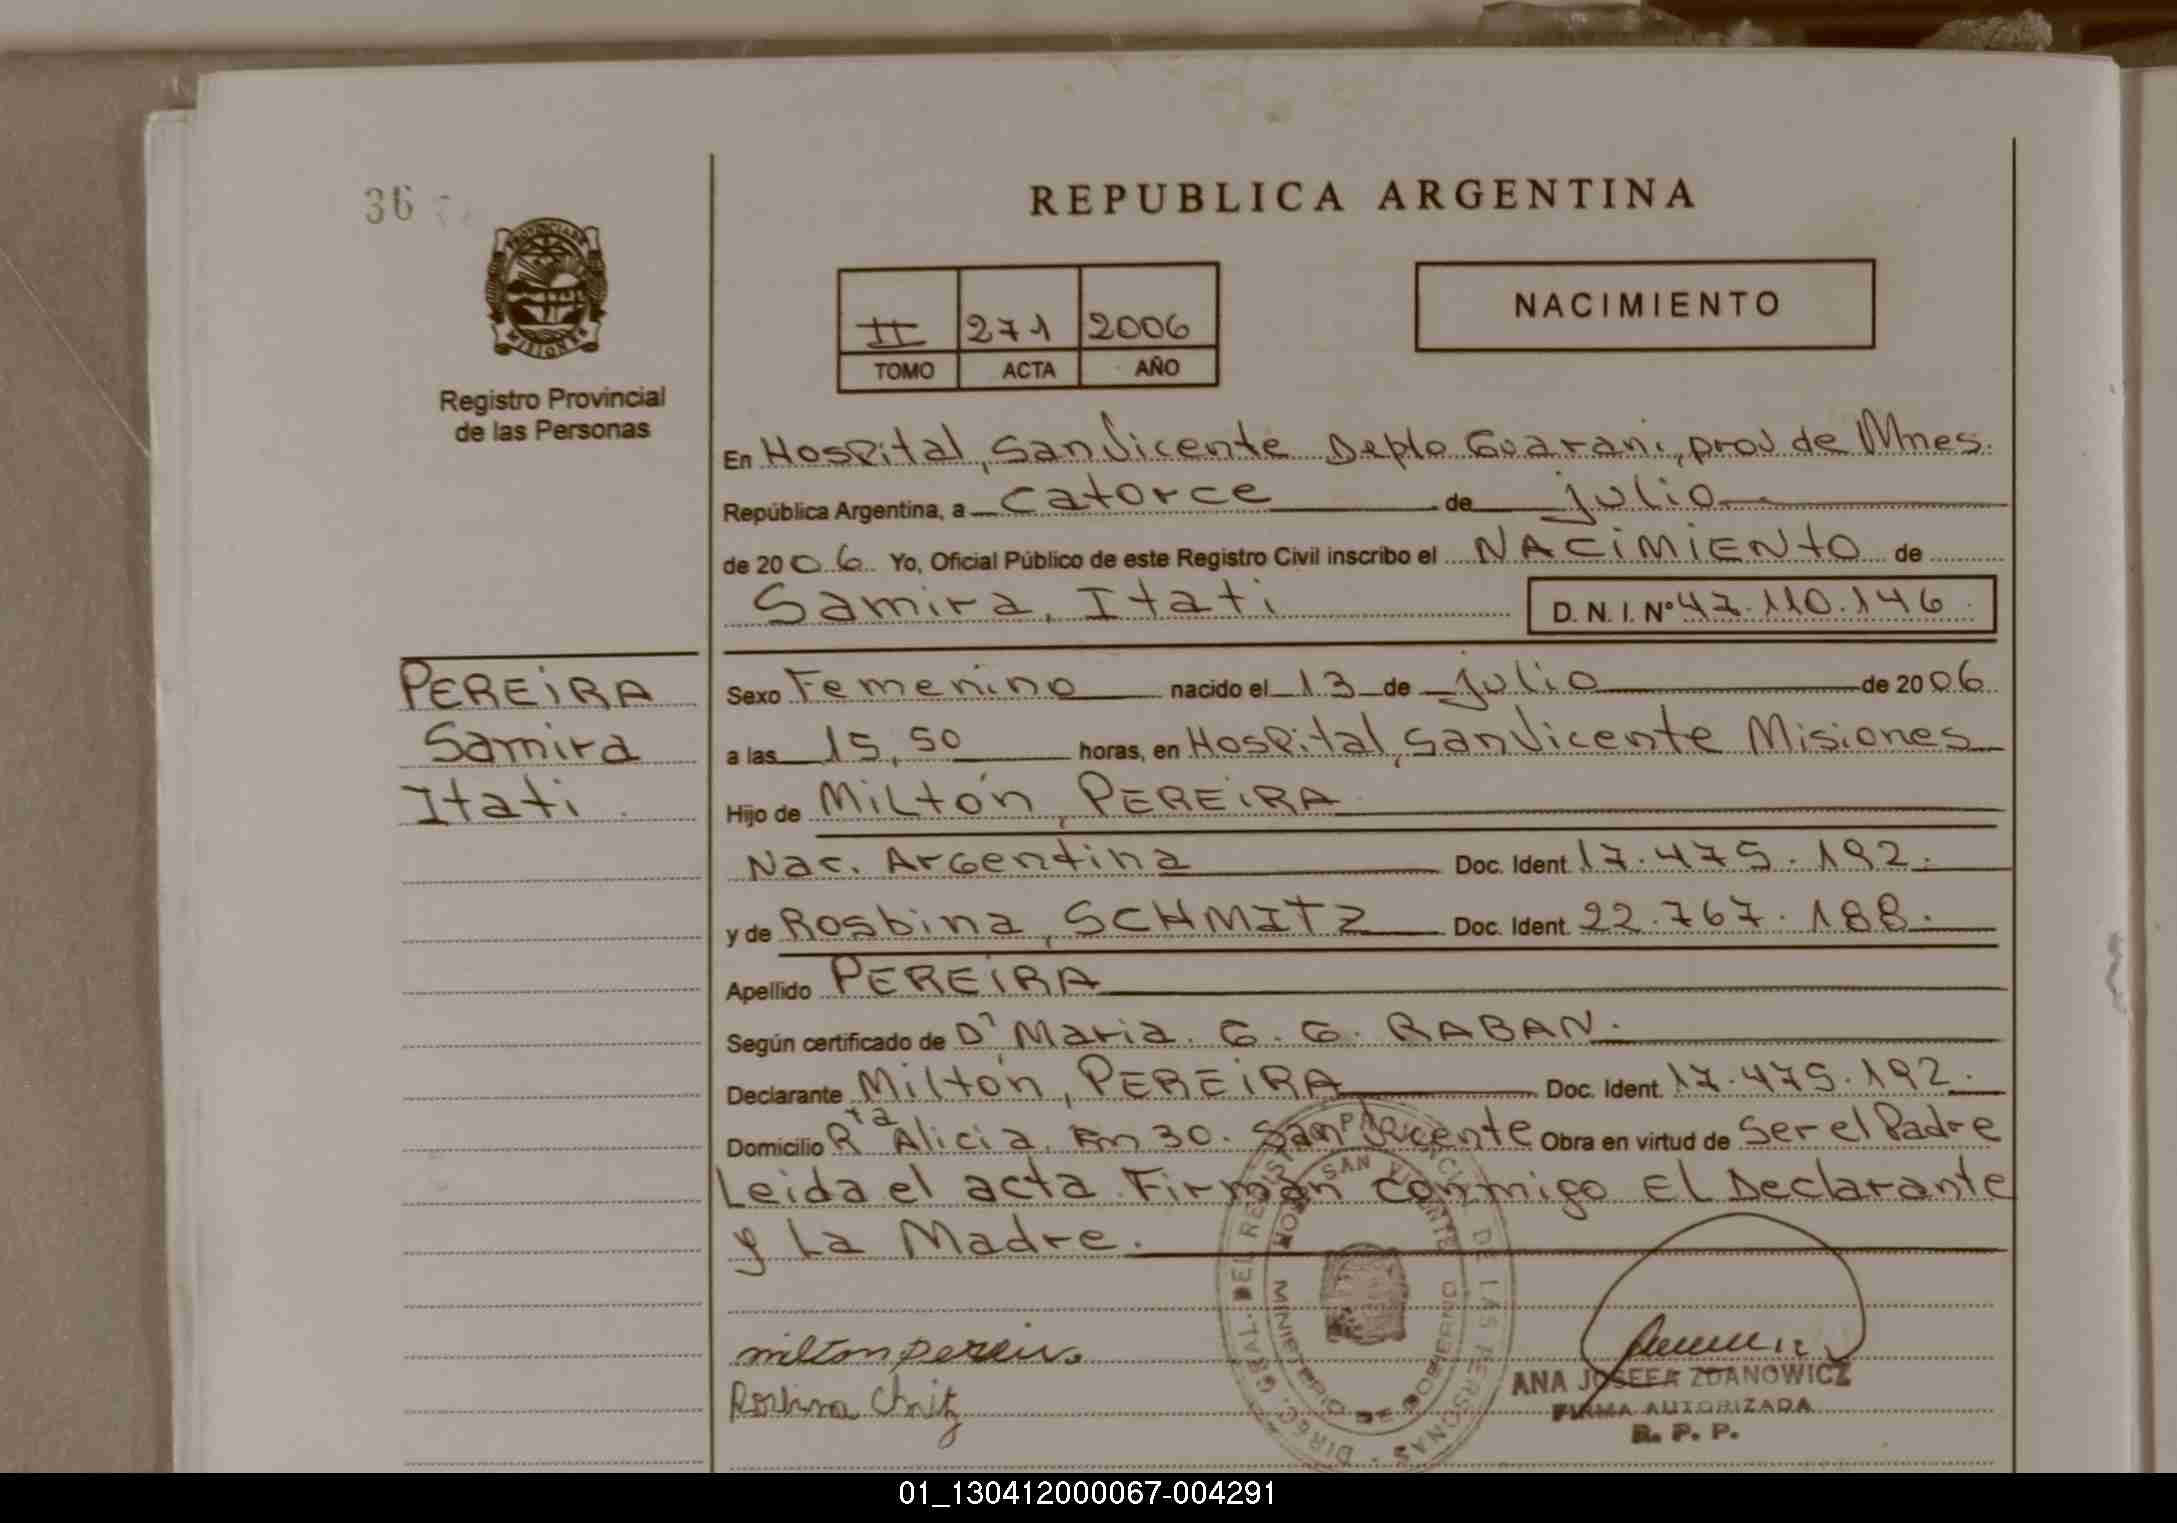 36
REPUBLICA ARGENTINA
PROVINCIA DE
MISIONES
Registro Provincial
de las Personas
II 271 2006
TOMO ACTA AÑO
NACIMIENTO
En Hospital, San Vicente Depto Guarani, prov de Mnes.
República Argentina, a catorce de julio
de 2006 Yo, Oficial Público de este Registro Civil inscribo el NACIMIENTO de
Samira, Itati D. N. I. Nº 47.110.146
PEREIRA
Samira
Itati
Sexo Femenino nacido el 13 de julio de 2006
a las 15,50 horas, en Hospital, San Vicente Misiones
Hijo de Miltón, PEREIRA
Nac. Argentina Doc. Ident. 17.475.192.
y de Rosbina, SCHMITZ Doc. Ident. 22.767.188.
Apellido PEREIRA
Según certificado de Dª Maria. G. G. RABAN.
Declarante Miltón, PEREIRA Doc. Ident. 17.475.192.
Domicilio Rta Alicia. Km 30. San Vicente Obra en virtud de Ser el Padre
Leida el acta Firman conmigo El Declarante
y La Madre.
DIREC. GRAL. DEL REGISTRO PROVINCIAL DE LAS PERSONAS
HOSP. SAN VICENTE
MINISTERIO DE GOBIERNO
milton Pereira
Rosbina Chmitz
ANA JOSEFA ZDANOWICZ
FIRMA AUTORIZADA
R. P. P.
01_130412000067-004291